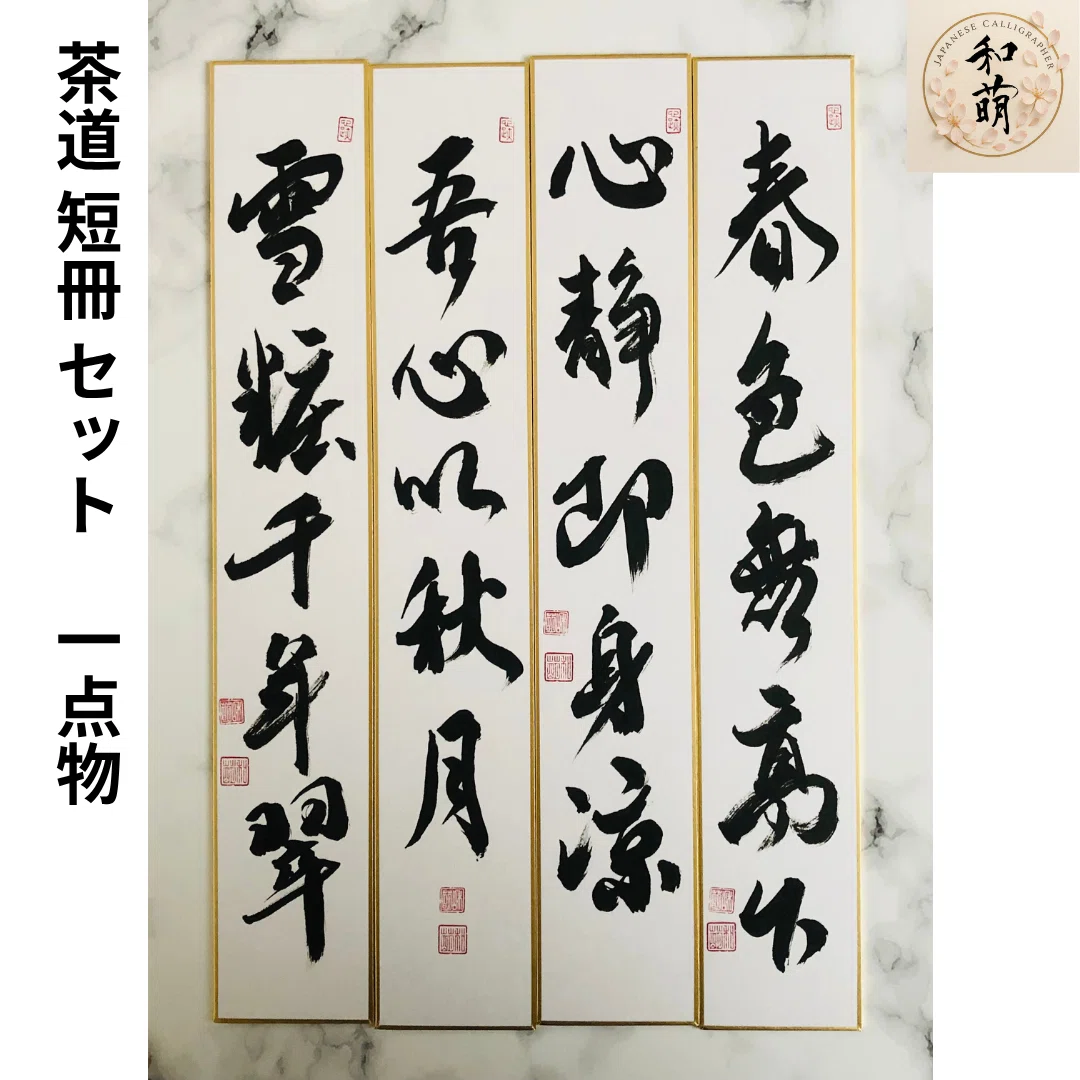 茶道 短冊 セット 一点物
JAPANESE CALLIGRAPHER
和萌
春色無高下
心静即身涼
吾心似秋月
雪粧千年翠